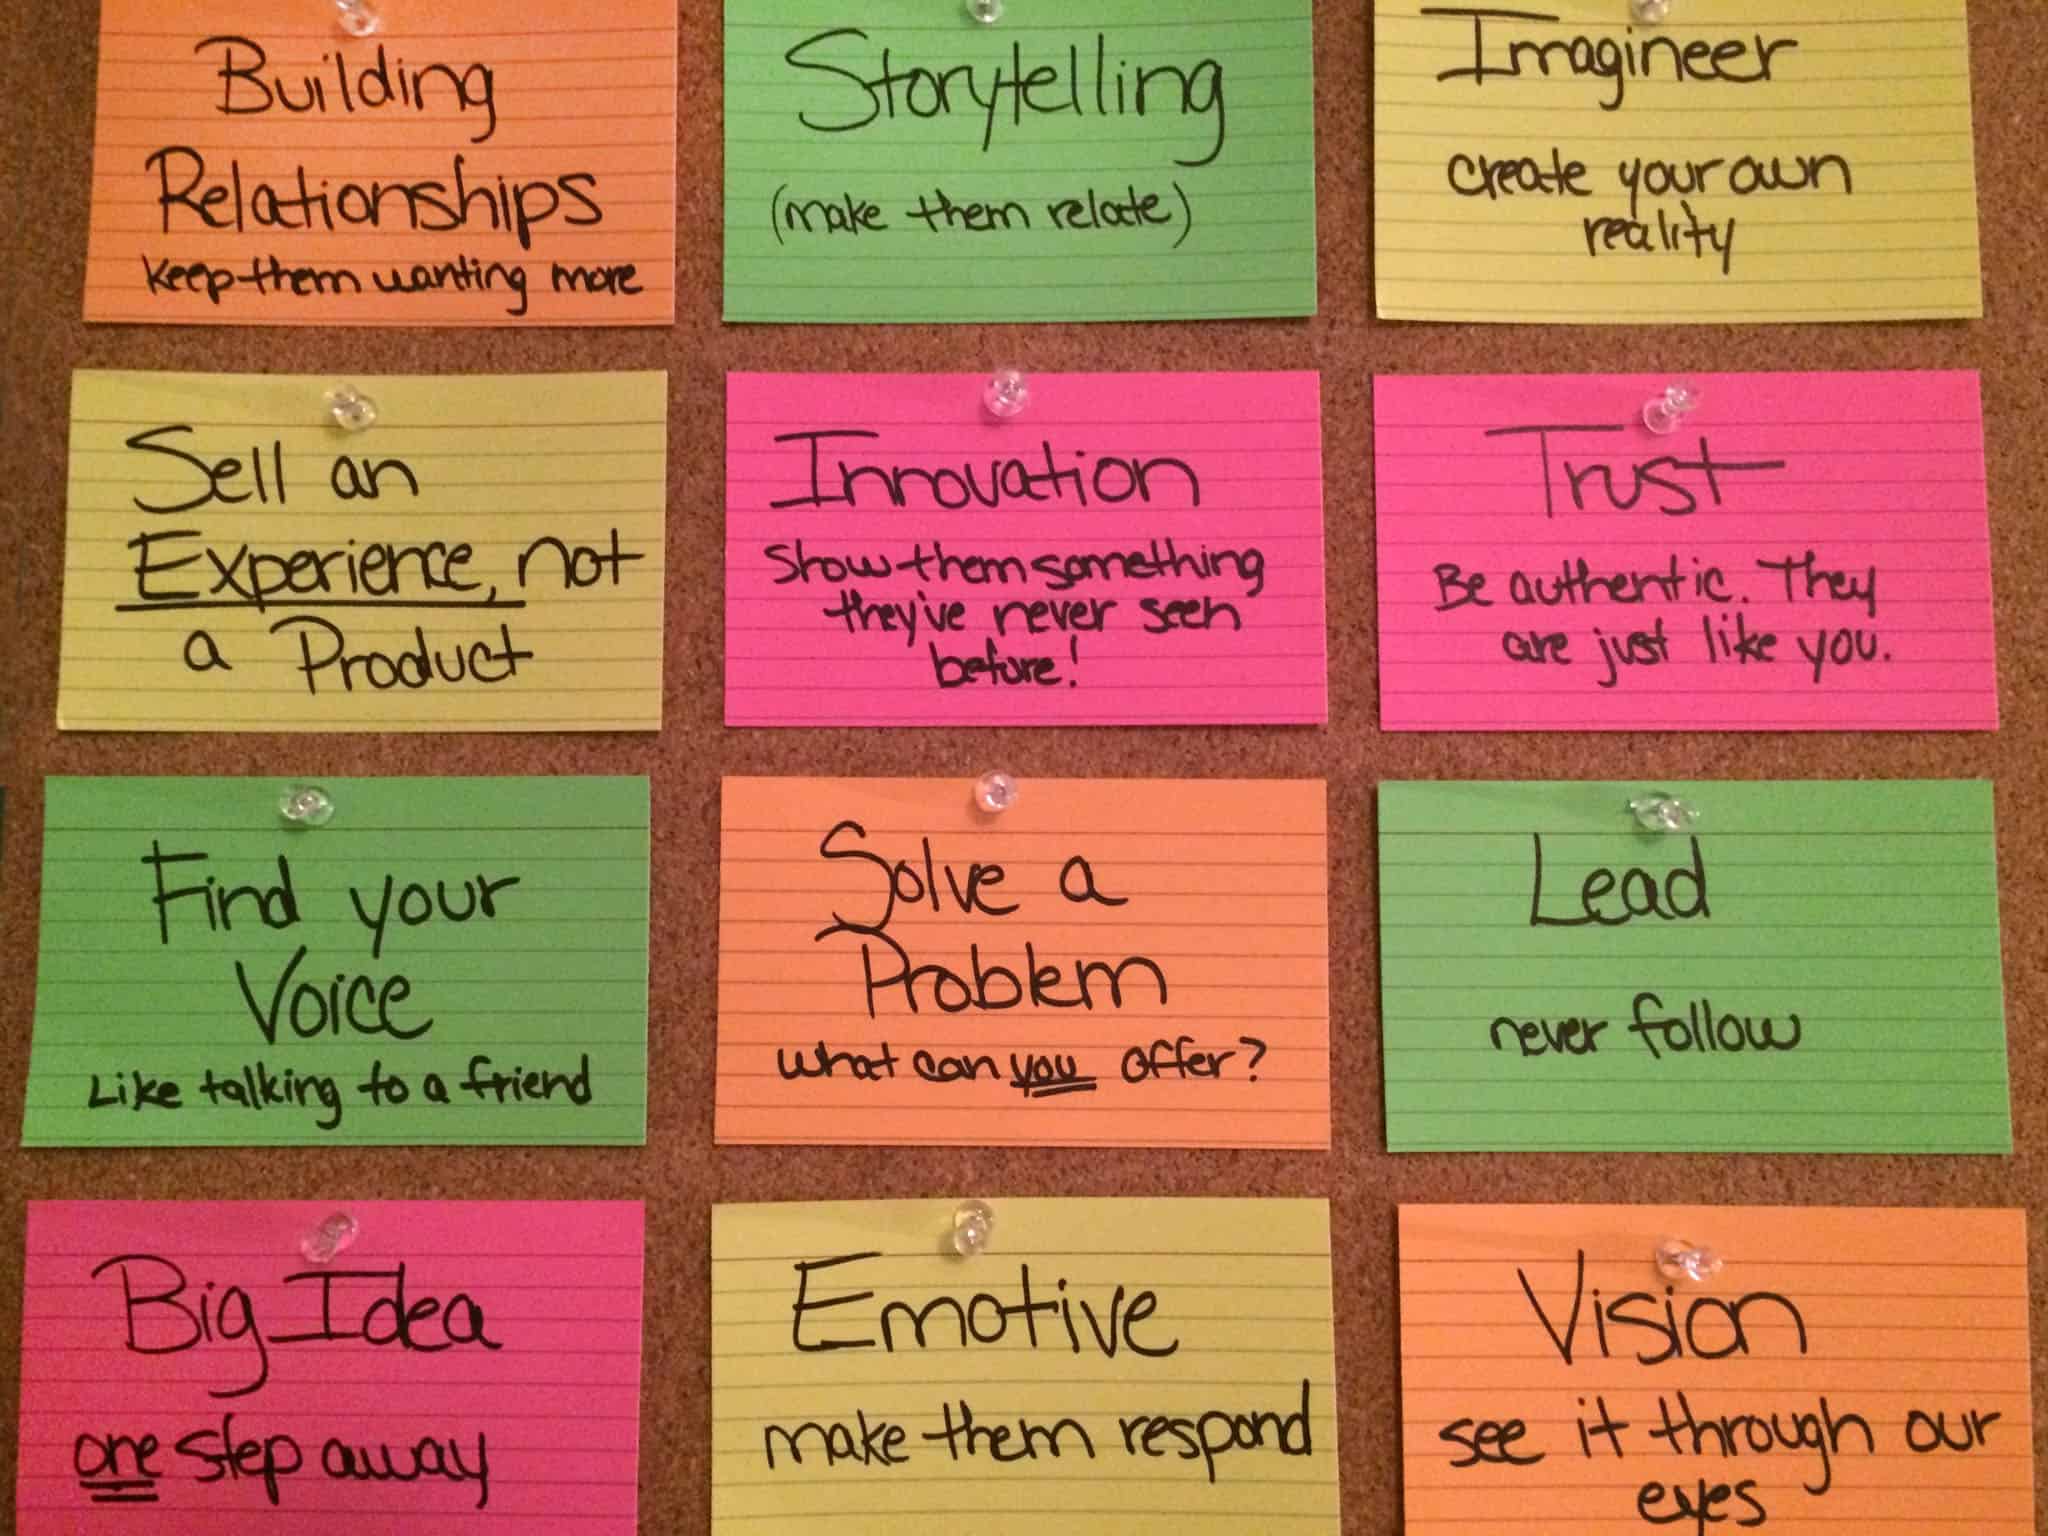 Building
Relationships
keep them wanting more
Storytelling
(make them relate)
Imagineer
create your own
reality
Sell an
Experience, not
a Product
Innovation
Show them something
they've never seen
before!
Trust
Be authentic. They
are just like you.
Find your
Voice
Like talking to a friend
Solve a
Problem
what can you offer?
Lead
never follow
Big Idea
one step away
Emotive
make them respond
Vision
see it through our
eyes